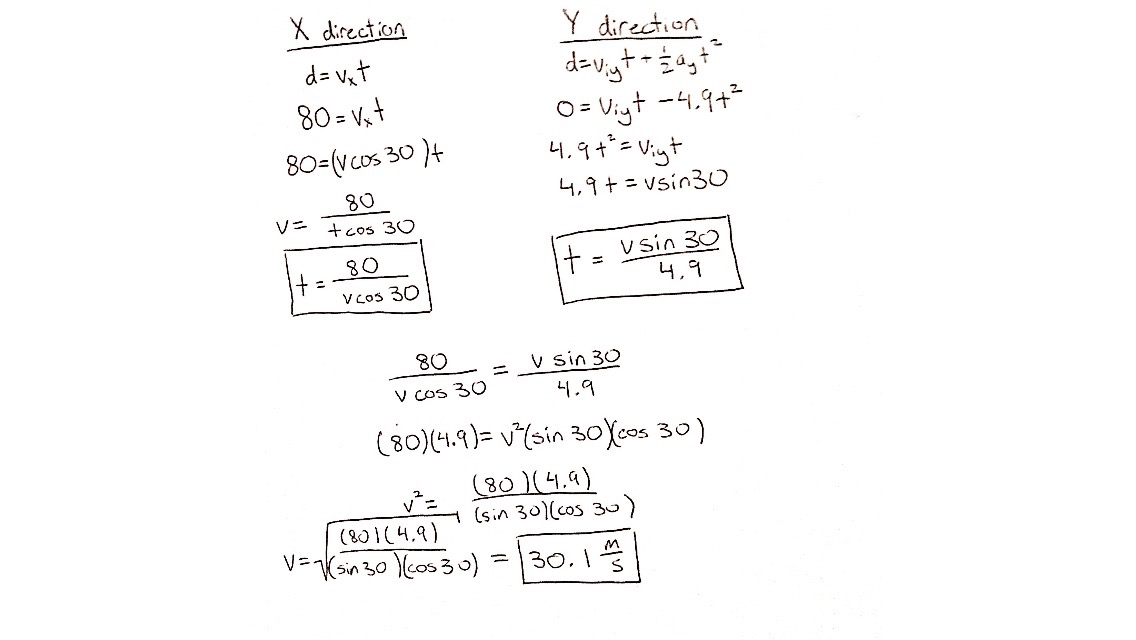 X direction
d=vₓt
80=vₓt
80=(vcos30)t
v= 80/(tcos 30)
t= 80/(vcos 30)
Y direction
d=v_iy t + ½a_y t²
0=v_iy t -4.9t²
4.9t²=v_iy t
4.9t=vsin30
t = (v sin 30)/4.9
80/(v cos 30) = (v sin 30)/4.9
(80)(4.9)= v²(sin 30)(cos 30)
v²= (80)(4.9)/((sin 30)(cos 30))
v=√((80)(4.9)/((sin30)(cos30))) = 30.1 m/s